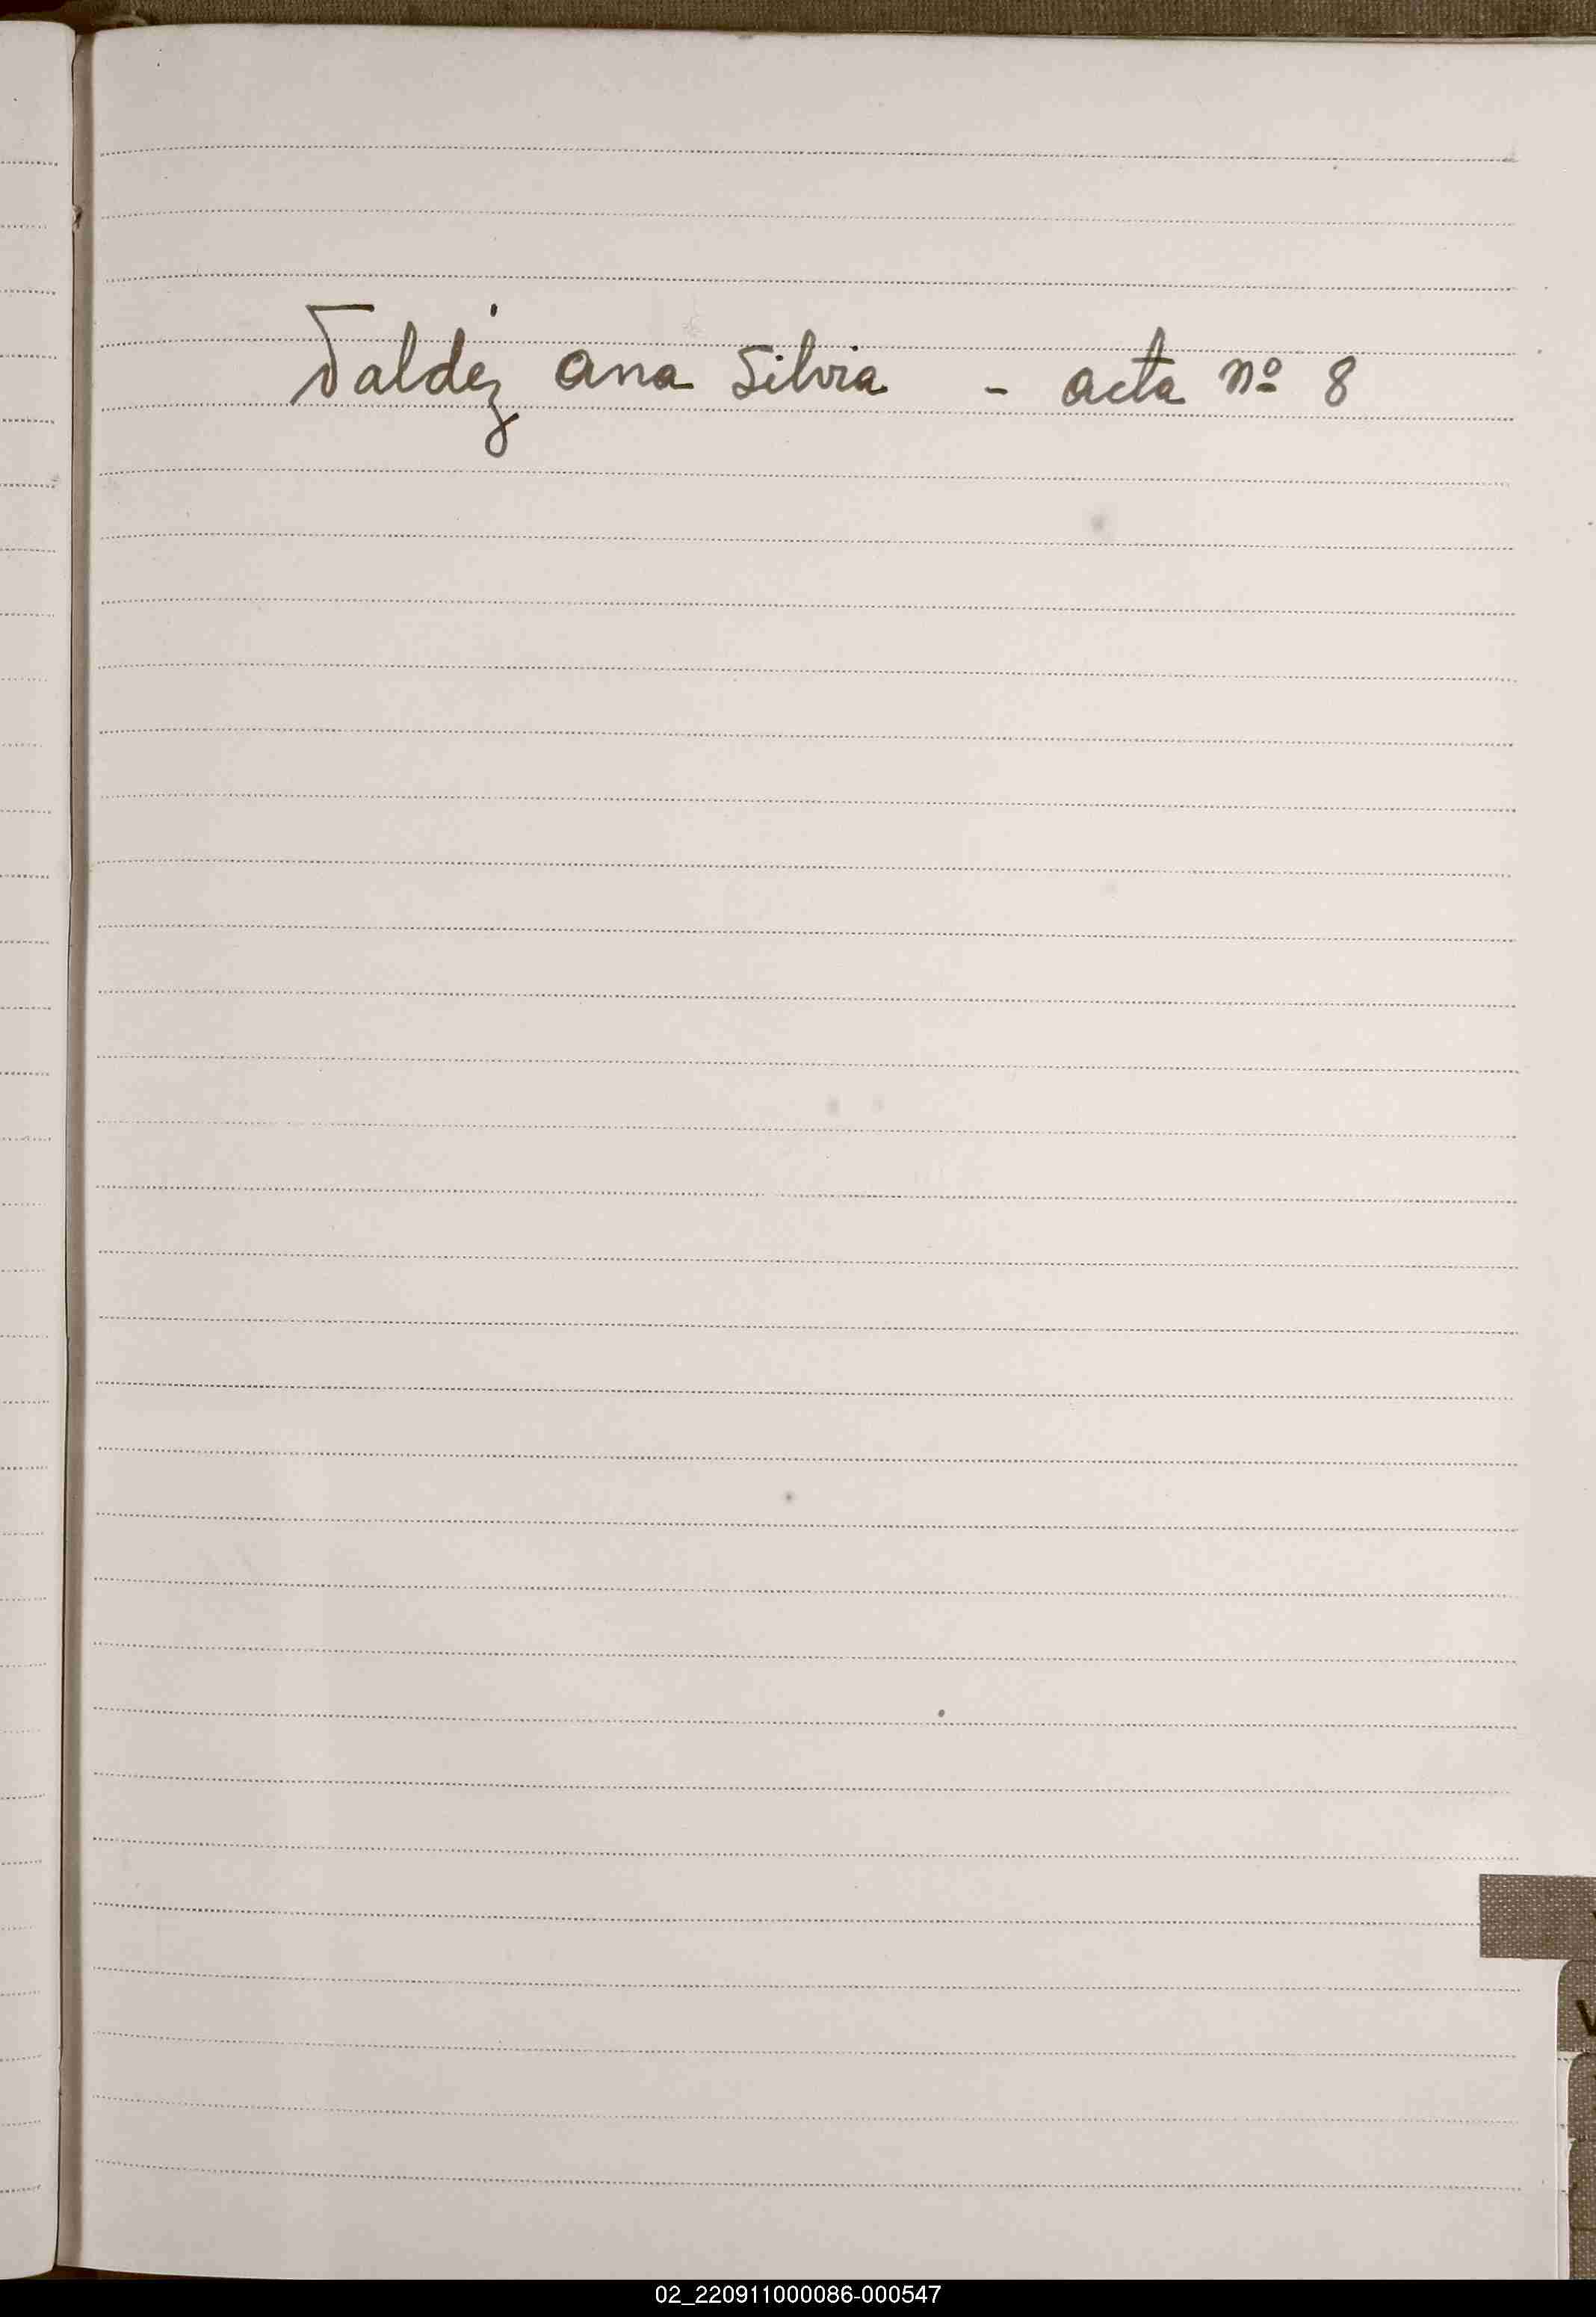 Valdéz Ana Silvia - acta nº 8
V
02_220911000086-000547